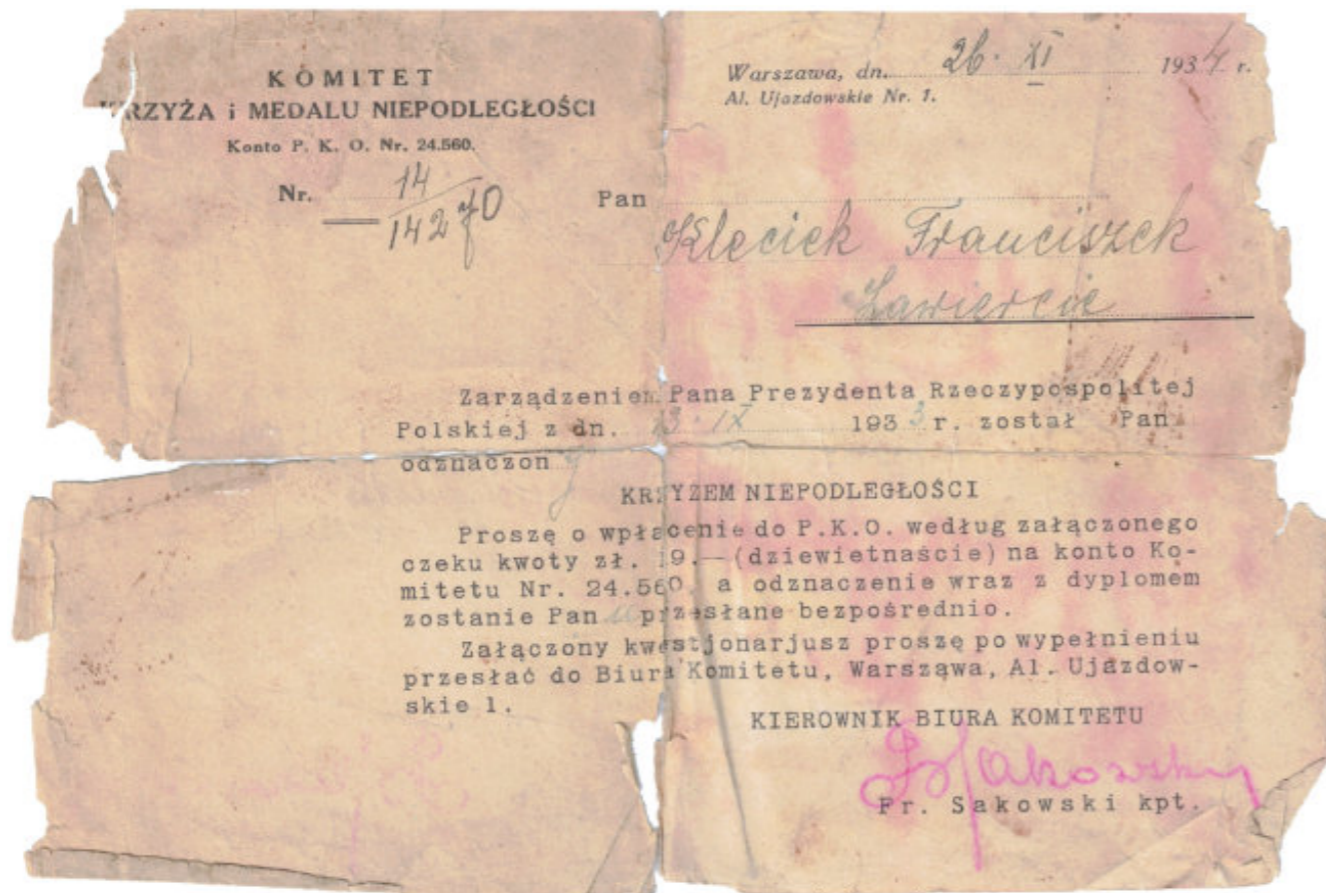 KOMITET
KRZYŻA i MEDALU NIEPODLEGŁOŚCI
Konto P. K. O. Nr. 24.560.
Nr. 14/14270
Warszawa, dn. 26. XI 1934 r.
Al. Ujazdowskie Nr. 1.
Pan
Kleciek Franciszek
Zawiercie
Zarządzeniem Pana Prezydenta Rzeczypospolitej
Polskiej z dn. 13. IX 1933 r. został Pan
odznaczony
KRZYZEM NIEPODLEGŁOŚCI
Proszę o wpłacenie do P.K.O. według załączonego
czeku kwoty zł. 19.— (dziewietnaście) na konto Ko-
mitetu Nr. 24.560, a odznaczenie wraz z dyplomem
zostanie Panu przesłane bezpośrednio.
Załączony kwestjonarjusz proszę po wypełnieniu
przesłać do Biura Komitetu, Warsząwa, Al. Ujazdow-
skie 1.
KIEROWNIK BIURA KOMITETU
Sakowski
Fr. Sakowski kpt.